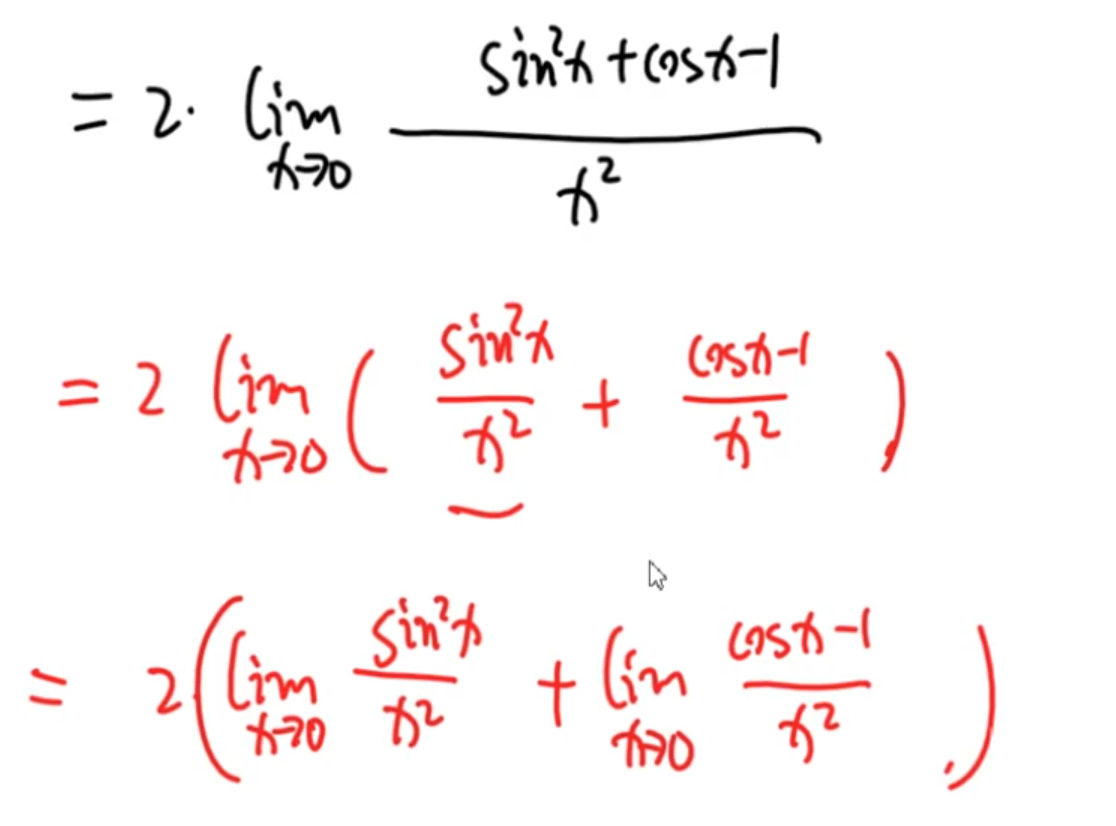 = 2 · lim_{x→0} (sin²x + cosx - 1) / x²
= 2 lim_{x→0} ( sin²x / x² + (cosx - 1) / x² )
= 2 ( lim_{x→0} sin²x / x² + lim_{x→0} (cosx - 1) / x² )